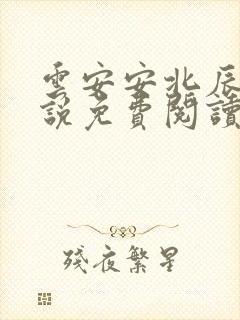 雲安安北辰
說免費閱讀
殘夜繁星